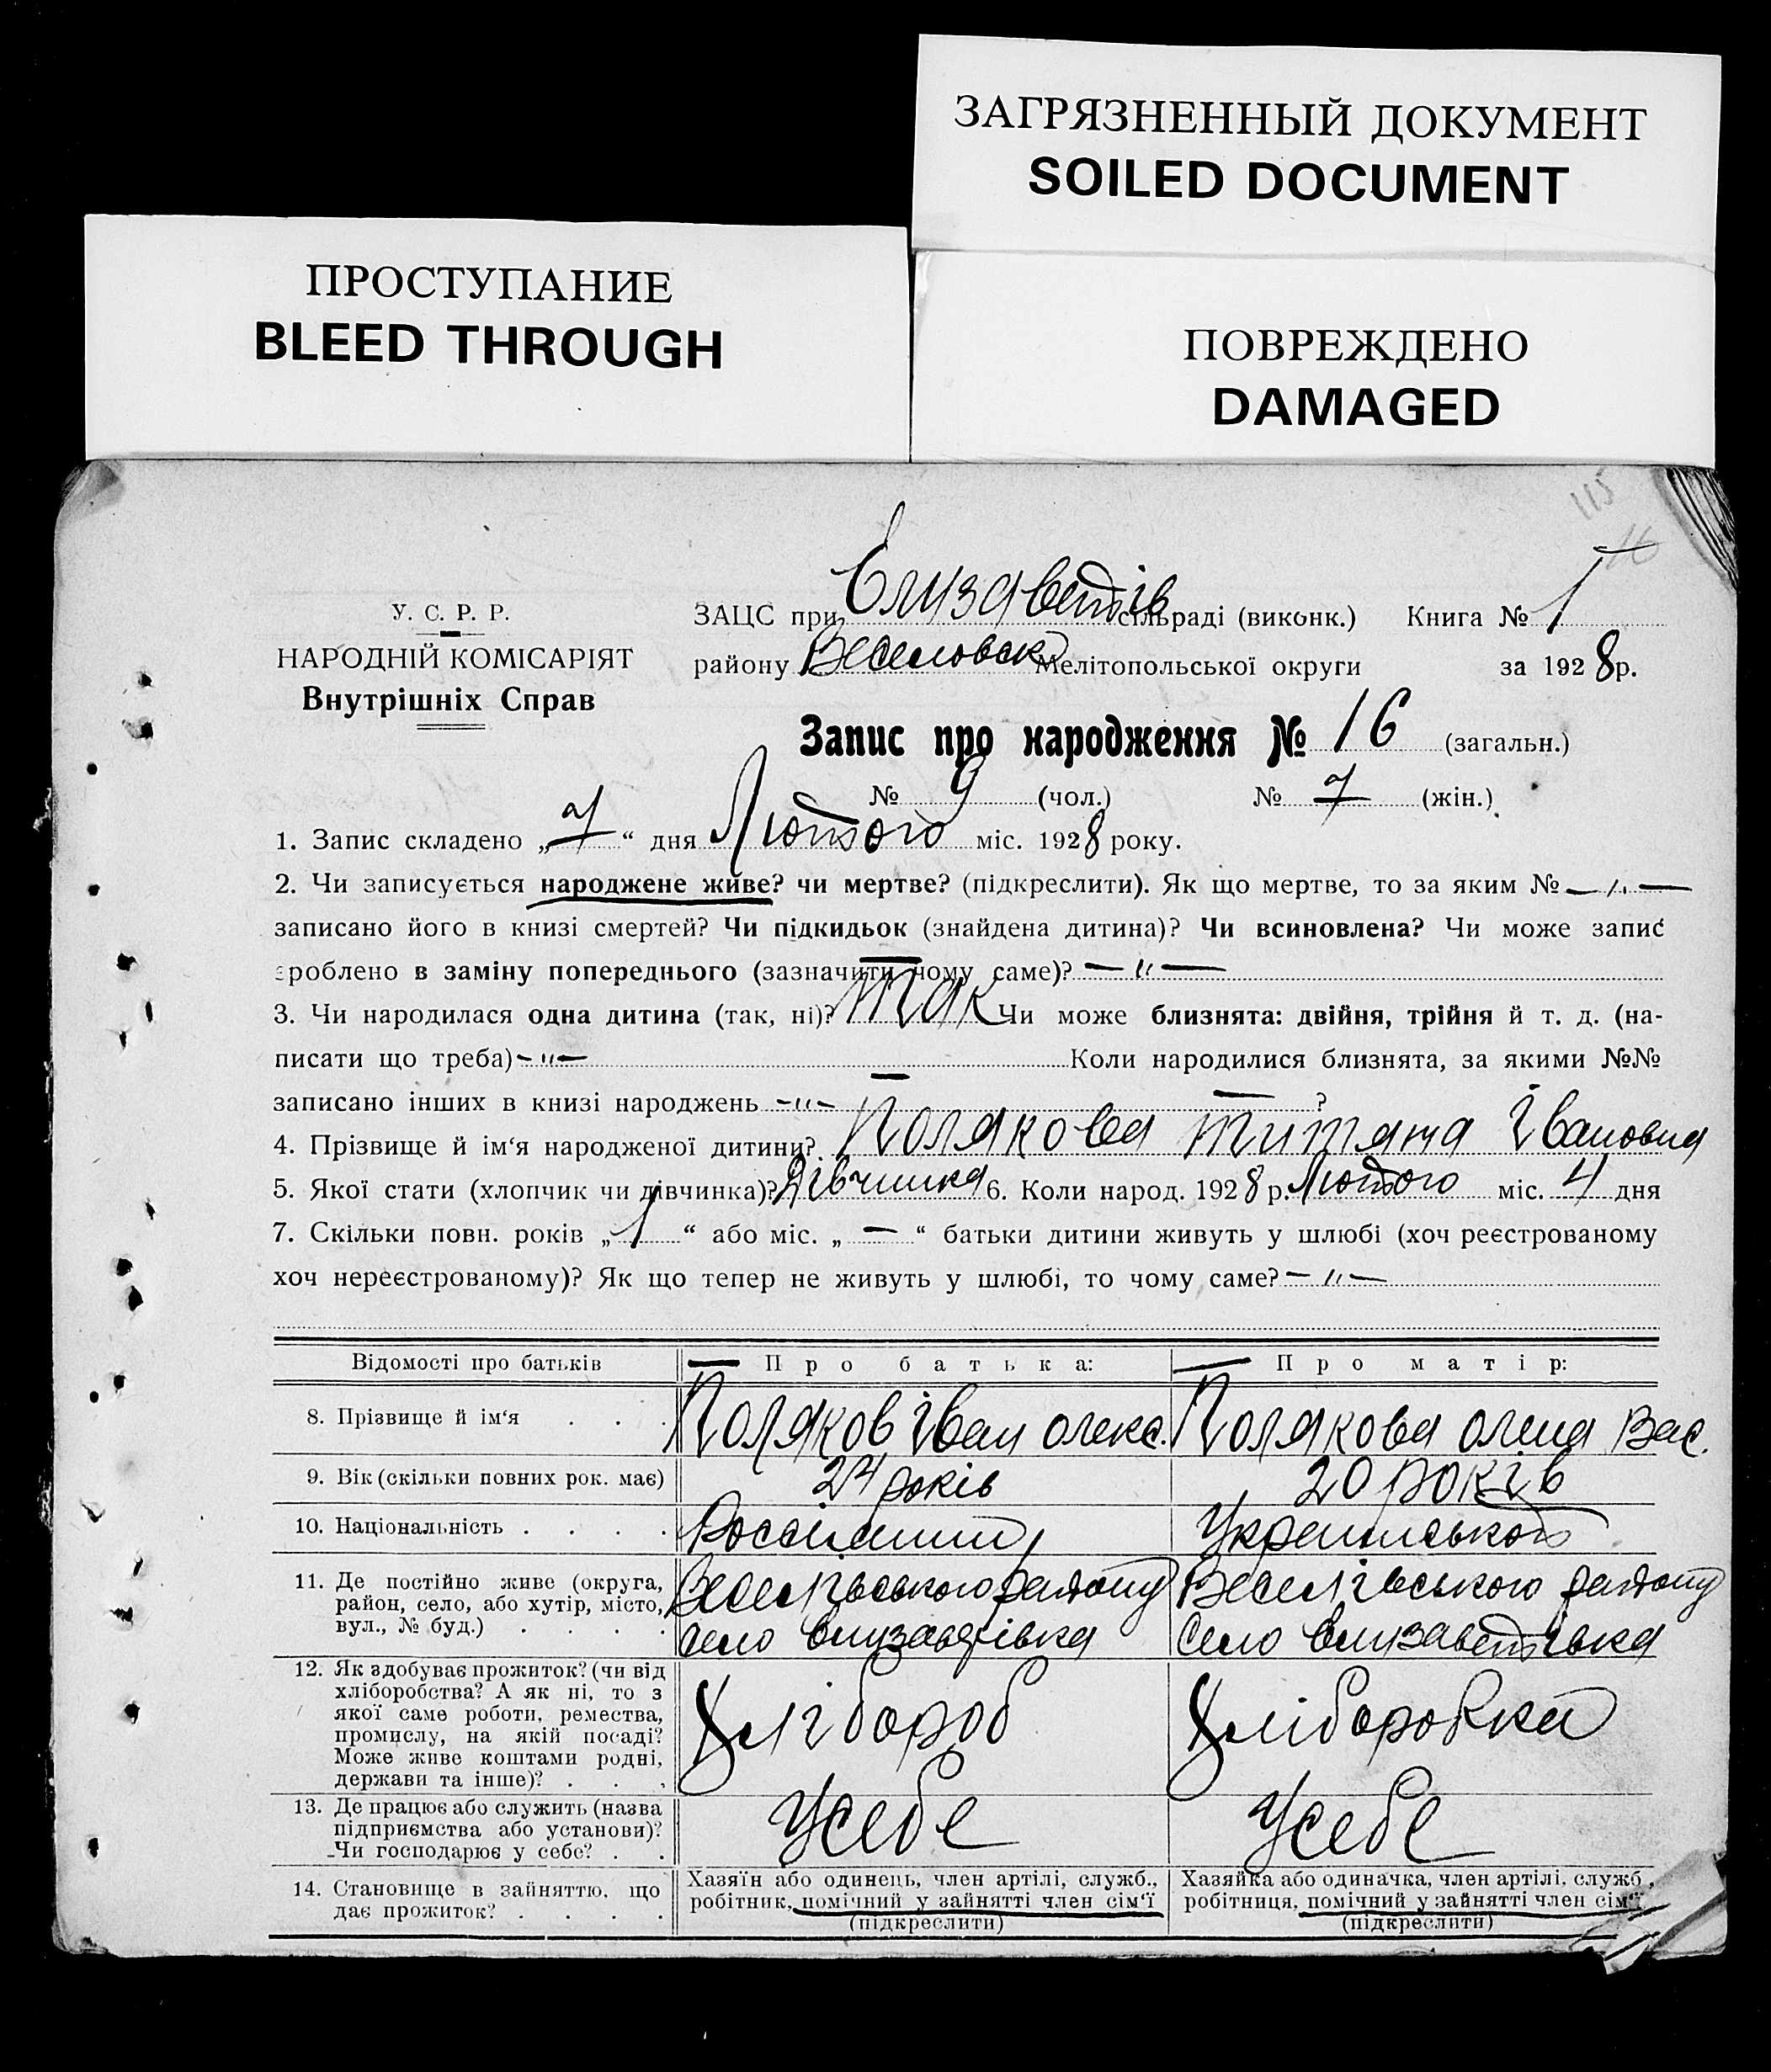 ЗАГРЯЗНЕННЫЙ ДОКУМЕНТ
SOILED DOCUMENT
ПРОСТУПАНИЕ
BLEED THROUGH
ПОВРЕЖДЕНО
DAMAGED
115
16
У. С. Р. Р.
НАРОДНІЙ КОМІСАРІЯТ
Внутрішніх Справ
ЗАЦС при Єлизаветів сільраді (виконк.) Книга № 1
району Веселовськ Мелітопольської округи за 1928 р.
Запис про народження № 16 (загальн.)
№ 9 (чол.) № 7 (жін.)
1. Запис складено „7“ дня Лютого міс. 1928 року.
2. Чи записується народжене живе? чи мертве? (підкреслити). Як що мертве, то за яким № — „ —
записано його в книзі смертей? Чи підкидьок (знайдена дитина)? Чи всиновлена? Чи може запис
зроблено в заміну попереднього (зазначити чому саме)? — „ —
3. Чи народилася одна дитина (так, ні)? Так Чи може близнята: двійня, трійня й т. д. (на-
писати що треба) - „ - Коли народилися близнята, за якими №№
записано інших в книзі народжень - „ - ?
4. Прізвище й ім‘я народженої дитини? Полякова Титяна Івановна
5. Якої стати (хлопчик чи дівчинка)? Дівчинка 6. Коли народ. 1928 р. Лютого міс. 4 дня
7. Скільки повн. років „1“ або міс. „—“ батьки дитини живуть у шлюбі (хоч реєстрованому
хоч нереєстрованому)? Як що тепер не живуть у шлюбі, то чому саме? — „ —
Відомості про батьків Про батька: Про матір:
8. Прізвище й ім‘я . . . Поляков Іван Олекс. Полякова Олена Вас.
9. Вік (скільки повних рок. має) 24 років 20 років
10. Національність . . . . Украинського
11. Де постійно живе (округа, район, село, або хутір, місто, вул., № буд.) . . . .
Веселівського району Веселівського району
село Єлизаветівка Село Єлизаветівка
12. Як здобуває прожиток? (чи від хліборобства? А як ні, то з якої саме роботи, ремества, промислу, на якій посаді? Може живе коштами родні, держави та інше)? . . .
Хлібороб Хліборобка
13. Де працює або служить (назва підприємства або установи)? Чи господарює у себе? . .
У себе У себе
14. Становище в зайняттю, що дає прожиток? . . . .
Хазяїн або одинець, член артілі, служб., Хазяйка або одиначка, член артілі, служб.,
робітник, помічний у зайнятті член сім‘ї робітниця, помічний у зайнятті член сім‘ї
(підкреслити) (підкреслити)